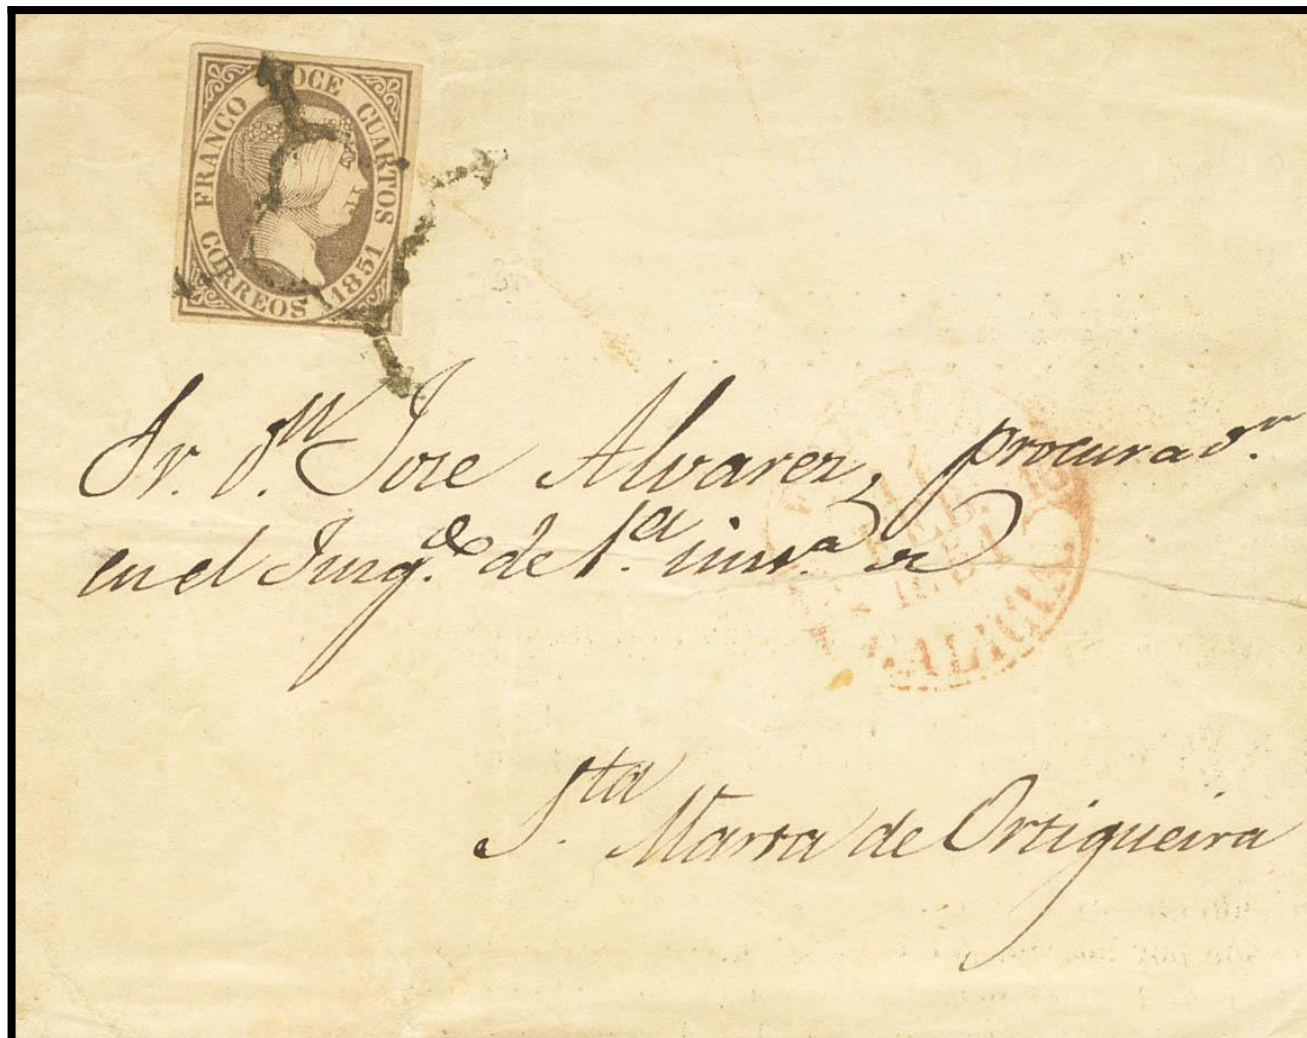 FRANCO DOCE CUARTOS
CORREOS 1851
Sr. Dn Jose Alvarez, procuradr.
en el Juzgdo. de 1a. insta. de
Sta Marta de Ortigueira
FEB.
1851
GALICIA